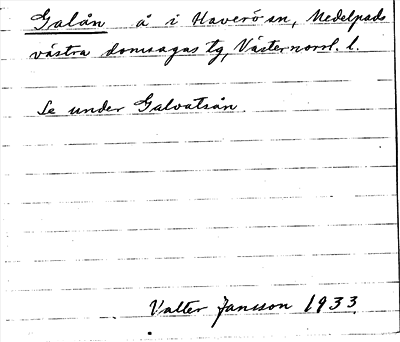 Galån å i Haverö sn, Medelpads
västra domsagas tg, Västernorrl. l.
Se under Galvatsån.
Valter Jansson 1933.